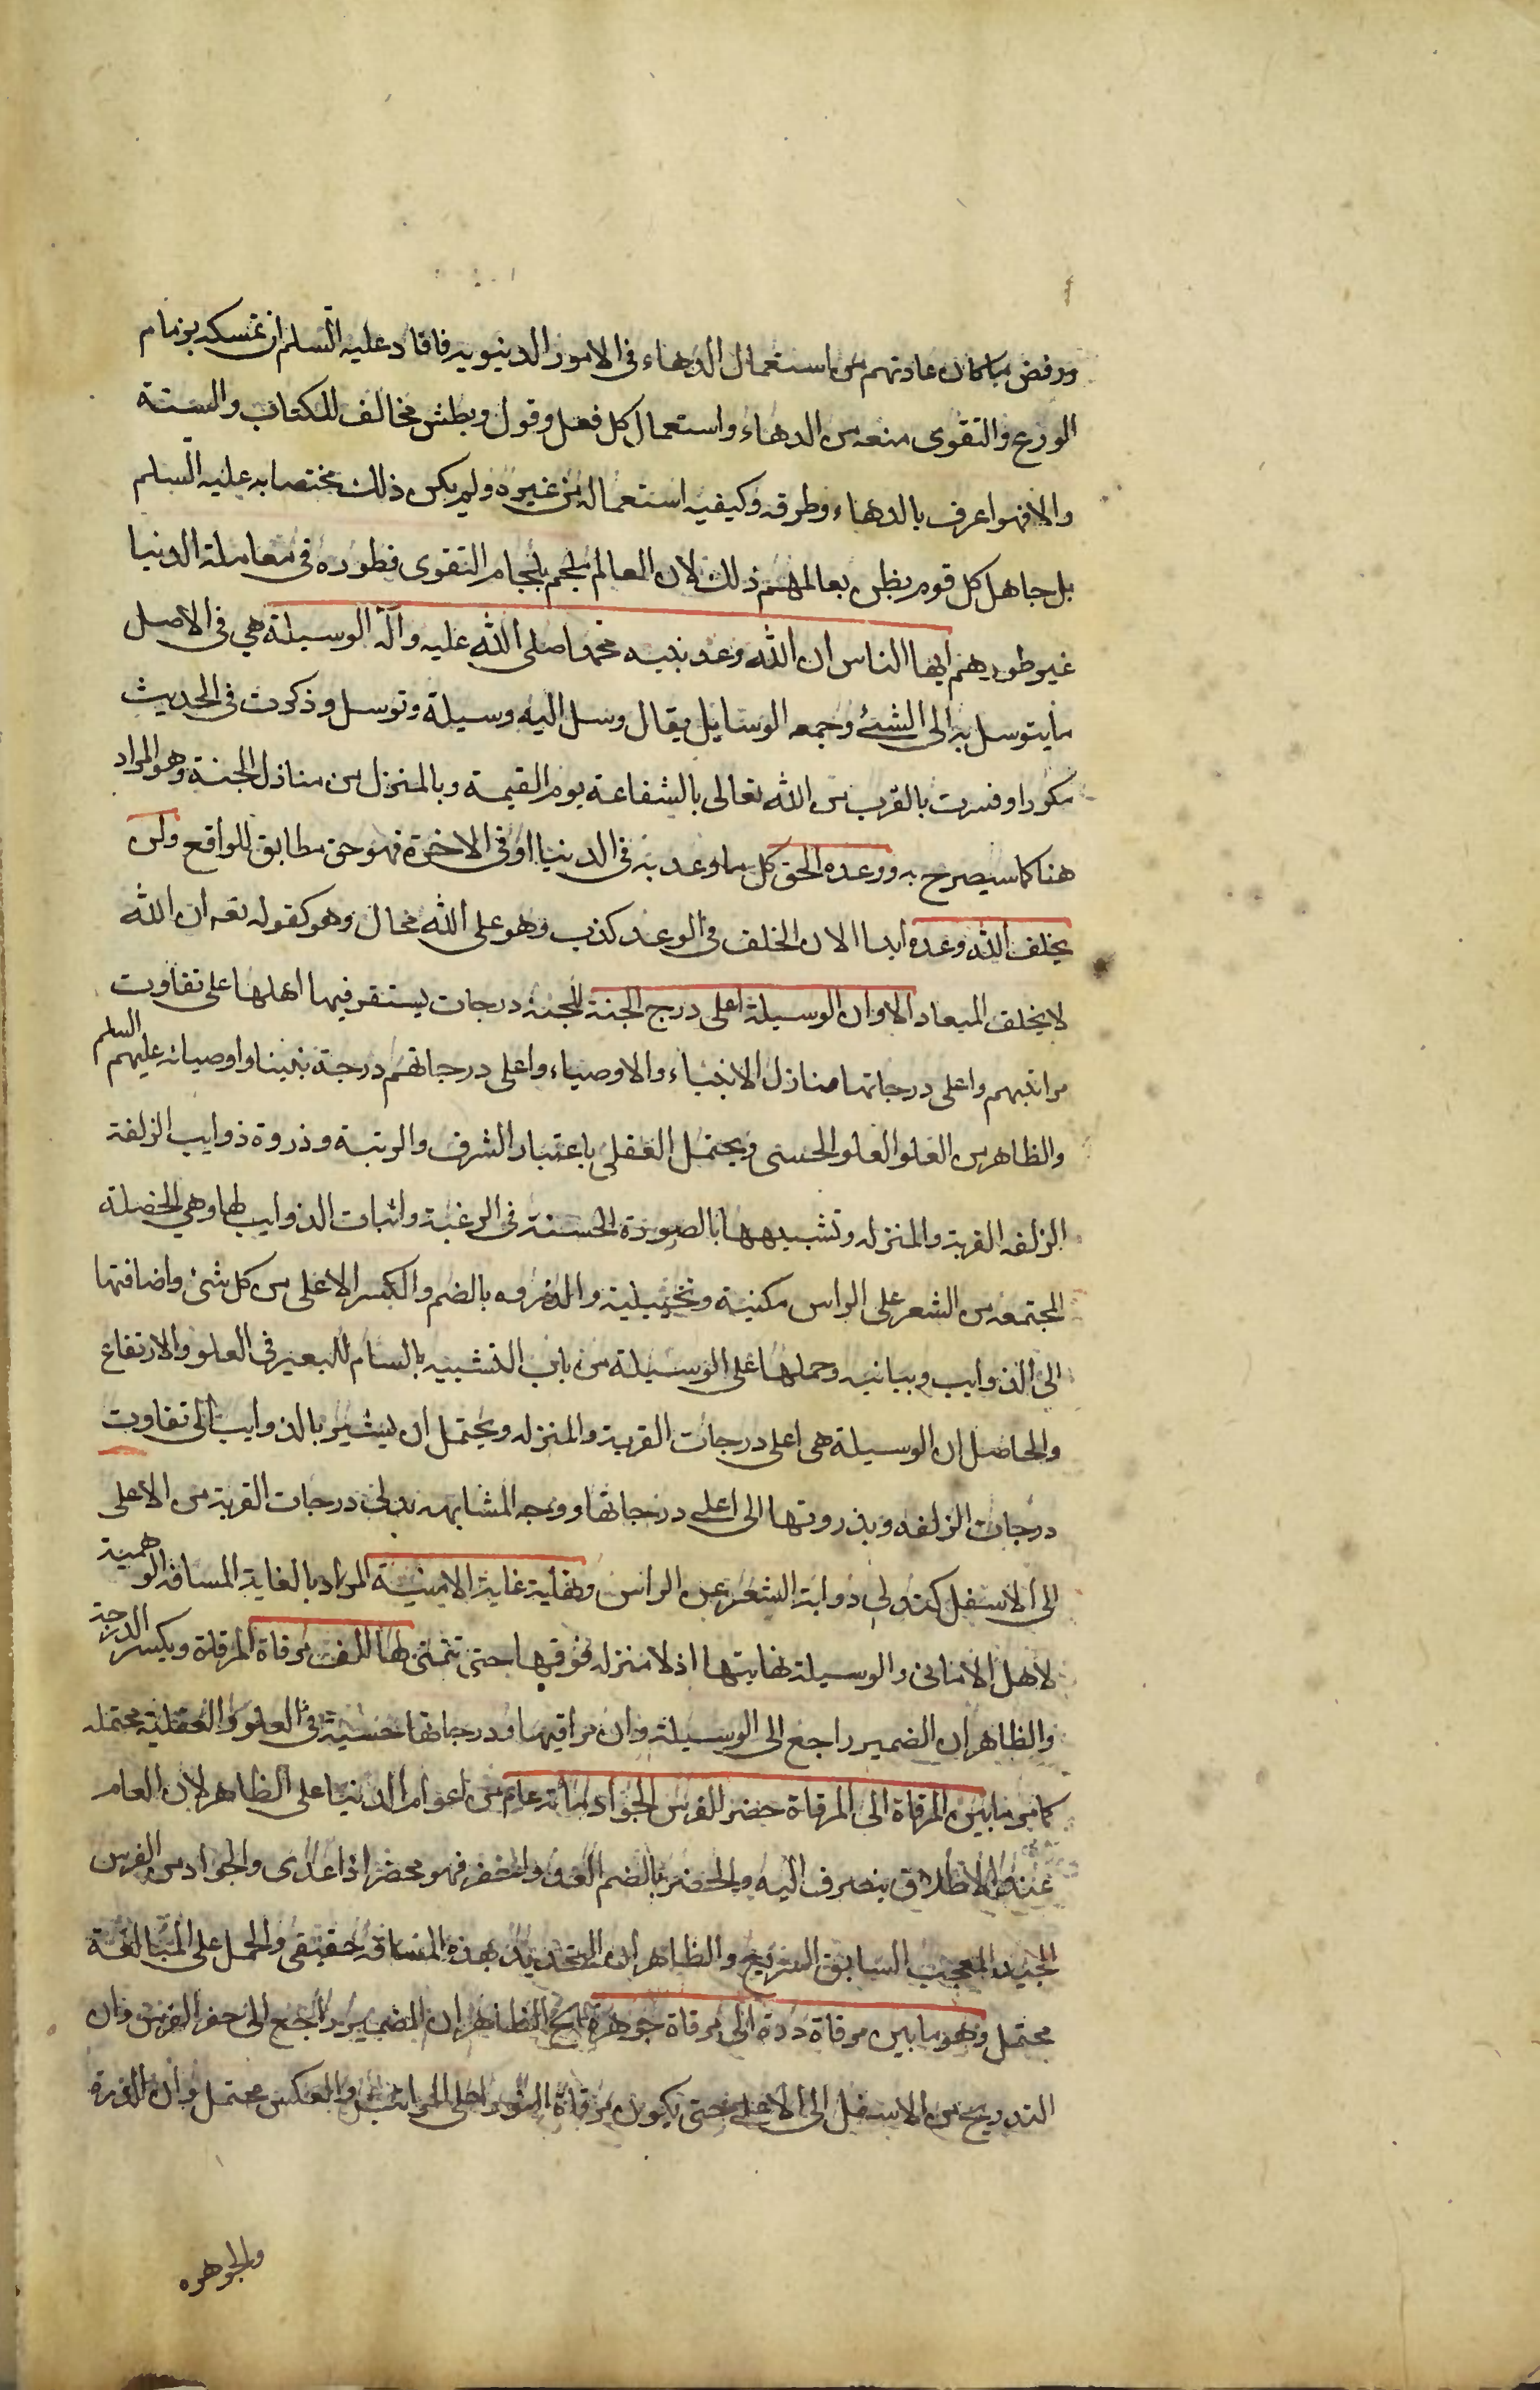 ورفض ما كان عادتهم من استعمال الدهاء فى الامور الدنيويه فافاد عليه السلم ان تمسكه بزمام
الورع والتقوى منعه من الدهاء واستعمال كل فعل وقول وبطش مخالف للكتاب والسنة
والا فهو اعرف بالدهاء وطرقه وكيفيه استعماله من غيره ولم يكن ذلك مختصا به عليه السلم
بل جاهل كل قوم يظن بعالمهم ذلك لان العالم ملجم بلجام التقوى فطوره فى معاملة الدنيا
غير طورهم ايها الناس ان الله وعد نبيه محمدا صلى الله عليه وآله الوسيلة هي فى الاصل
ما يتوسل به الى الشئ وجمعه الوسايل يقال وسل اليه وسيلة وتوسل وذكرت فى الحديث
مكررا وفسرت بالقرب من الله تعالى بالشفاعة يوم القيمة وبالمنزل من منازل الجنة وهو المراد
هنا كما سيصرح به ووعده الحق كل ما وعد به فى الدنيا او فى الاخرة فهو حق مطابق للواقع ولن
يخلف الله وعده ابدا الا ان الخلف فى الوعد كذب وهو على الله محال وهو كقوله تعه ان الله
لا يخلف الميعاد الا وان الوسيلة اعلى درج الجنة للجنة درجات يستقر فيها اهلها على تفاوت
مراتبهم واعلى درجاتها منازل الانبياء والاوصياء واعلى درجاتهم درجة نبينا واوصيائه عليهم السلم
والظاهر من العلو العلو الحسى ويحتمل العقلى باعتبار الشرف والرتبة وذروة ذوايب الزلفة
الزلفه القربة والمنزله وتشبيهها بالصورة الحسنة فى الرغبة واثبات الذوايب لها وهي الخصلة
المجتمعه من الشعر على الراس مكنية وتخييلية والذروه بالضم والكسر الاعلى من كل شئ واضافتها
الى الذوايب وبيانيه وحملها على الوسيلة من باب التشبيه بالسنام للبعير فى العلو والارتفاع
والحاصل ان الوسيلة هى اعلى درجات القربة والمنزله ويحتمل ان يشير بالذوايب الى تفاوت
درجات الزلفه وبذروتها الى اعلى درجاتها ووجه المشابهه تدلى درجات القربة من الاعلى
الى الاسفل كتدلى ذوابة الشعر عن الراس ونهاية غاية الامنية المراد بالغاية المسافة الوهمية
لاهل الامانى والوسيلة نهايتها اذ لا منزله فوقها حتى تتمنى لها الف مرقاة المرقاة ويكسر الدرجة
والظاهر ان الضمير راجع الى الوسيلة وان مراقيها ودرجاتها حسية فى العلو والعقلية محتمله
كما مر ما بين المرقاة الى المرقاة حضر الفرس الجواد مأة عام من اعوام الدنيا على الظاهر لان العام
عند الاطلاق ينصرف اليه والحضر بالضم العدو واحضر فهو محضر اذا عدى والجواد من الفرس
الجيد المعجب السابق السريع والظاهر ان التحديد بهذه المسافة حقيقى والحمل على المبالغة
محتمل وهو ما بين مرقاة درة الى مرقاة جوهرة الخ الظاهر ان الضمير راجع الى حضر الفرس وان
التدريج من الاسفل الى الاعلى حتى يكون مرقاة النور اعلى المراتب والعكس محتمل وان الدرة
والجوهره